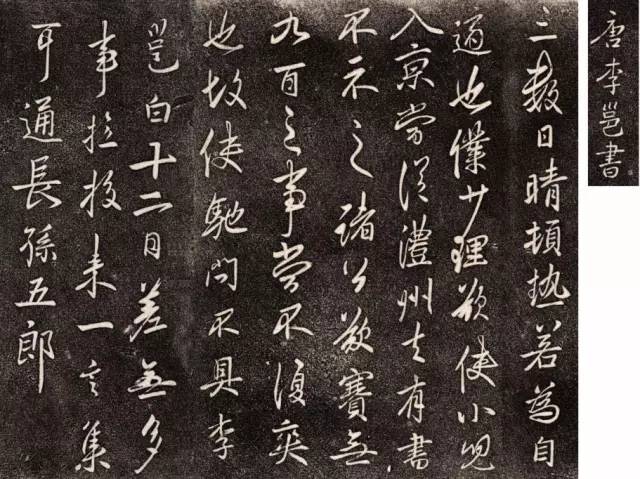 唐李邕書
三數日晴頓熱若為自
適也僕少理欲使小兒
入京當從澧州去有書
不示之諸公欲賽無
九百之事當不復奕
也故使馳問不具李
邕白十二日差無多
事拉投來一言集
耳通長孫五郎